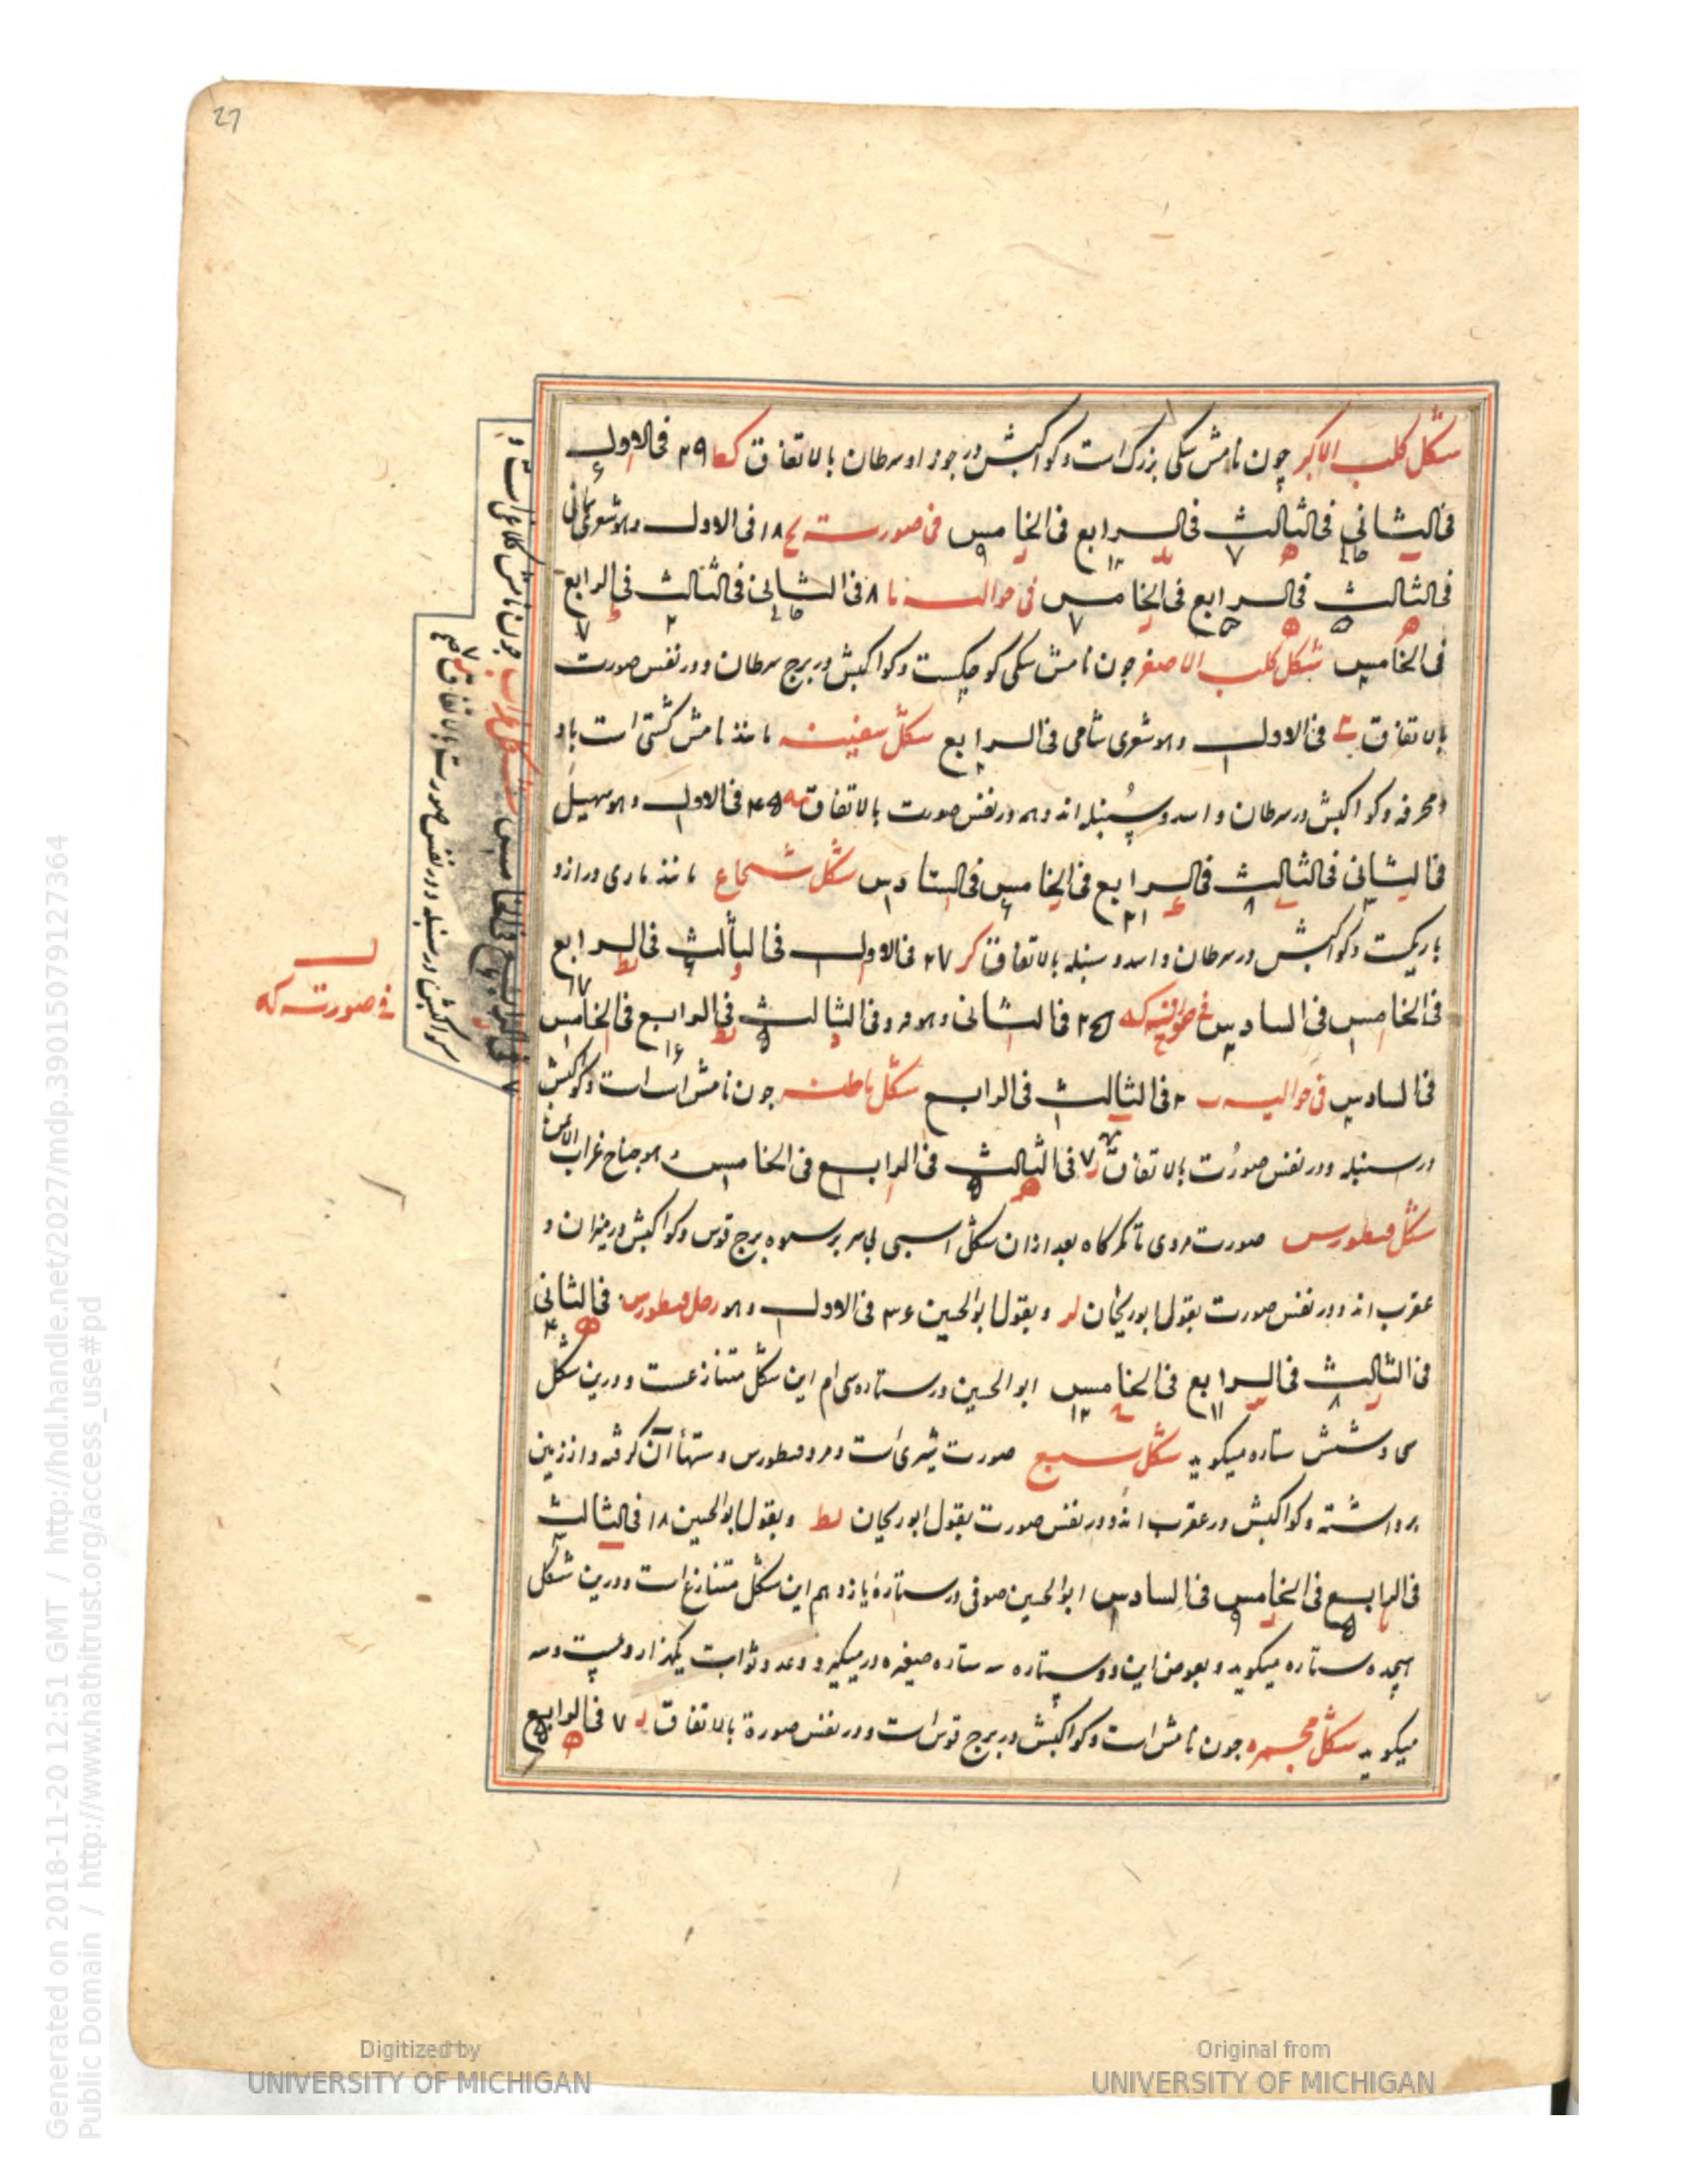 27
شکل کلب الاکبر چون نامش سکی بزرک است و کواکبش در جوزا و سرطان بالاتفاق کط ۲۹ فی الاول
فی الثانی فی الثالث فی الرابع فی الخامس فی صورت یح ۱۸ فی الاول وهو شعری یمانی
فی الثالث فی الرابع فی الخامس فی حوالیه یا ۸ فی الثانی فی الثالث فی الرابع
فی الخامس شکل کلب الاصغر چون نامش سکی کوچکست و کواکبش در برج سرطان و در نفس صورت
بالاتفاق فی الاول وهو شعری شامی فی الرابع شکل سفینه مانند نامش کشتی است با دو
مجرفه و کواکبش در سرطان و اسد و سنبله اند وهم در نفس صورت بالاتفاق مه ۴۵ فی الاول وهو سهیل
فی الثانی فی الثالث فی الرابع فی الخامس فی السادس شکل شجاع مانند ماری دراز و
باریکست و کواکبش در سرطان و اسد و سنبله بالاتفاق کر ۲۷ فی الاول فی الثالث فی الرابع
فی الخامس فی السادس که ۲۵ فی الثانی وهو فرد فی الثالث فی الرابع فی الخامس
فی السادس فی حوالیه ب ۲ فی الثالث فی الرابع شکل باطیه چون نامش است و کواکبش
در سنبله و در نفس صورت بالاتفاق ر ۷ فی الثالث فی الرابع فی الخامس وهو جناح غراب الایمن
شکل قنطورس صورت مردی تا کمرکاه بعد ازان شکل اسبی بی سر برسوه برج قوس و کواکبش در میزان و
عقرب اند و در نفس صورت بقول ابوریحان لر و بقول ابوالحسین ۳۶ فی الاول وهو رجل قنطورس فی الثانی
فی الثالث فی الرابع فی الخامس ابوالحسین در ستاره سی ام این شکل متنازعست و درین شکل
سی و شش ستاره میکوید شکل سبع صورت شیری است و مرد قنطورس دستهاء آن کرفته و از زمین
برداشته و کواکبش در عقرب اند و در نفس صورت بقول ابوریحان یط و بقول ابوالحسین ۱۸ فی الثالث
فی الرابع فی الخامس فی السادس ابوالحسین صوفی در ستارهٔ یازدهم این شکل متنازع است و درین شکل
هیجده ستاره میکوید و بعوض این دو ستاره سه ستاره صغیره درمیکیرد و عدد ثوابت یکهزار و بیست و سه
میکوید شکل مجمره چون نامش است و کواکبش در برج قوس است و در نفس صورة بالاتفاق ر ۷ فی الرابع
فی الخامس شکل غراب چون نامش کلاغی است و
کواکبش در سنبله و در نفس صورت بالاتفاق
فی صورت که
Generated on 2018-11-20 12:51 GMT / http://hdl.handle.net/2027/mdp.39015079127364
Public Domain / http://www.hathitrust.org/access_use#pd
Digitized by
UNIVERSITY OF MICHIGAN
Original from
UNIVERSITY OF MICHIGAN